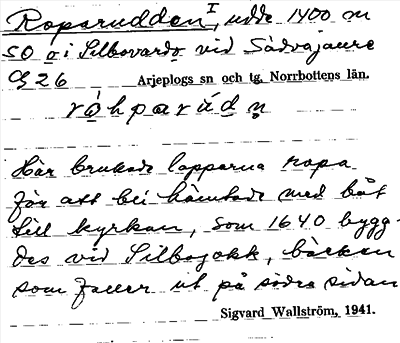 Roparudden I, udde 1400 m
SO o i Silbovardo vid Sädvajaure
G 26 Arjeplogs sn och tg. Norrbottens län.
rå̀hparúdn̥
Här brukade lapparna ropa
för att bli hämtade med båt
till kyrkan, som 1640 bygg-
des vid Silbojokk, bäcken
som faller ut på södra sidan
Sigvard Wallström, 1941.